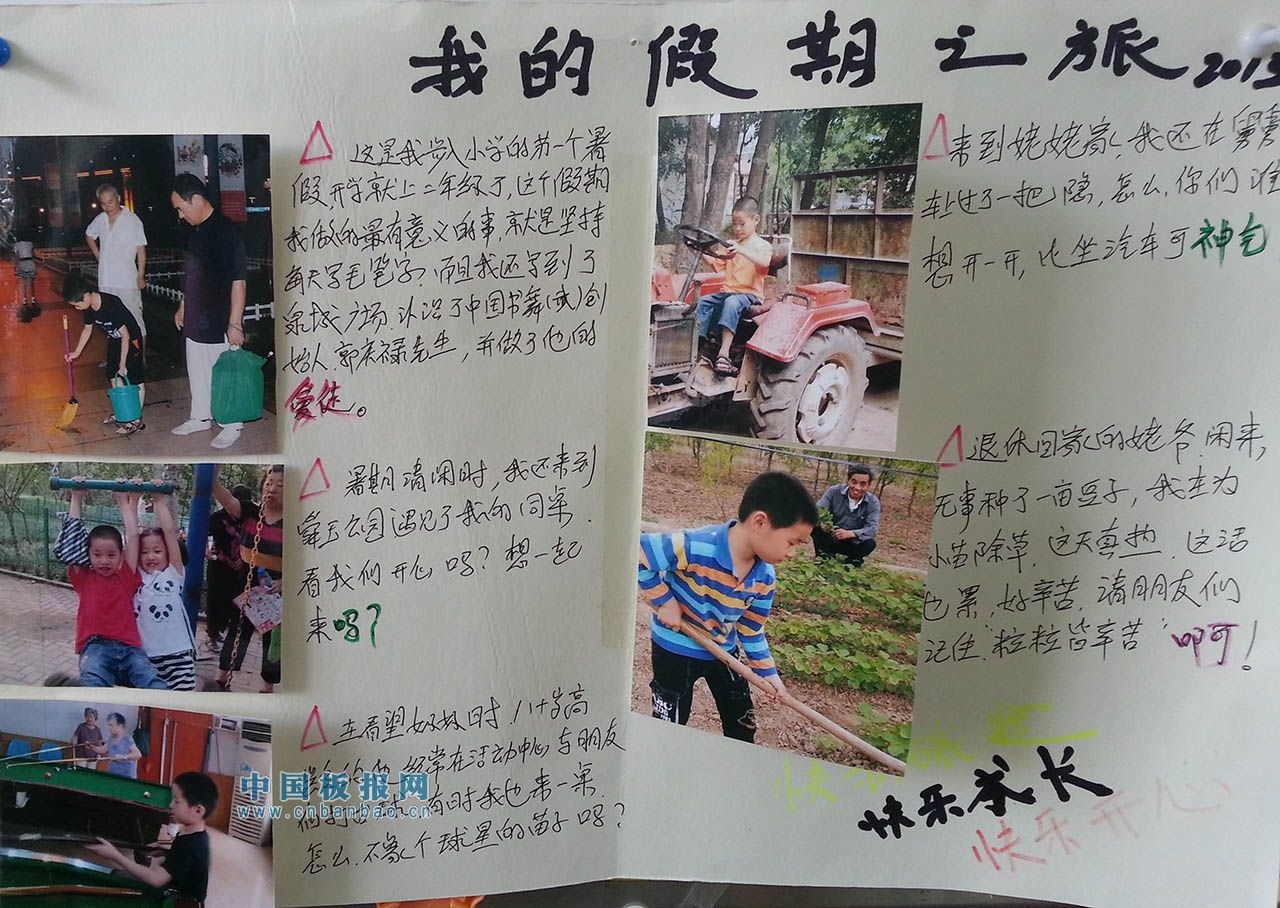 我的假期之旅 2013
△ 这是我步入小学的第一个暑
假,开学就上二年级了,这个假期
我做的最有意义的事,就是坚持
每天写毛笔字,而且我还写到了
泉城广场,认识了中国书舞(武)创
始人,郭庆禄先生,并做了他的
爱徒。
△ 暑期清闲时,我还来到
舜玉公园遇见了我的同桌.
看我们开心吗?想一起
来吗?
△ 去看望奶奶时,八十岁高
经常在活动中心与朋友
有时我也来一桌.
怎么,不象个球星的苗子吗?
△来到姥姥家,我还在舅舅
车上过了一把隐,怎么,你们谁
想开一开,比坐汽车可神气
△退休回家的姥爷,闲来,
无事种了一亩豆子,我在为
小苗除草,这天真热,这活
也累,好辛苦,请朋友们
记住"粒粒皆辛苦"叩可!
快乐旅途
快乐成长
快乐开心
中国板报网
www.cnbanbao.cn